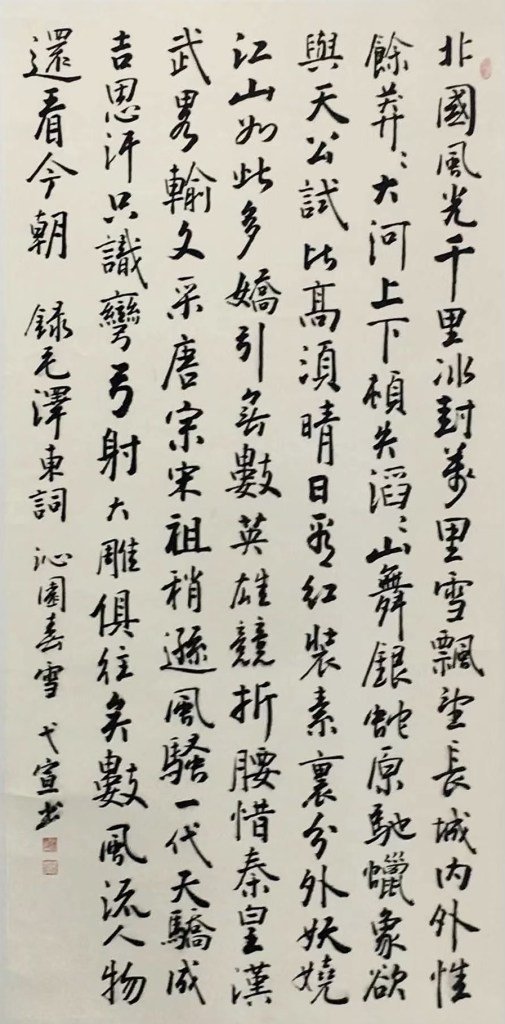 北國風光千里冰封萬里雪飄望長城内外惟
餘莽〻大河上下頓失滔〻山舞銀蛇原馳蠟象欲
與天公試比高須晴日看紅裝素裹分外妖嬈
江山如此多嬌引無數英雄競折腰惜秦皇漢
武畧輸文采唐宗宋祖稍遜風騷一代天驕成
吉思汗只識彎弓射大雕俱往矣數風流人物
還看今朝 録毛澤東詞 沁園春雪 弋宣书